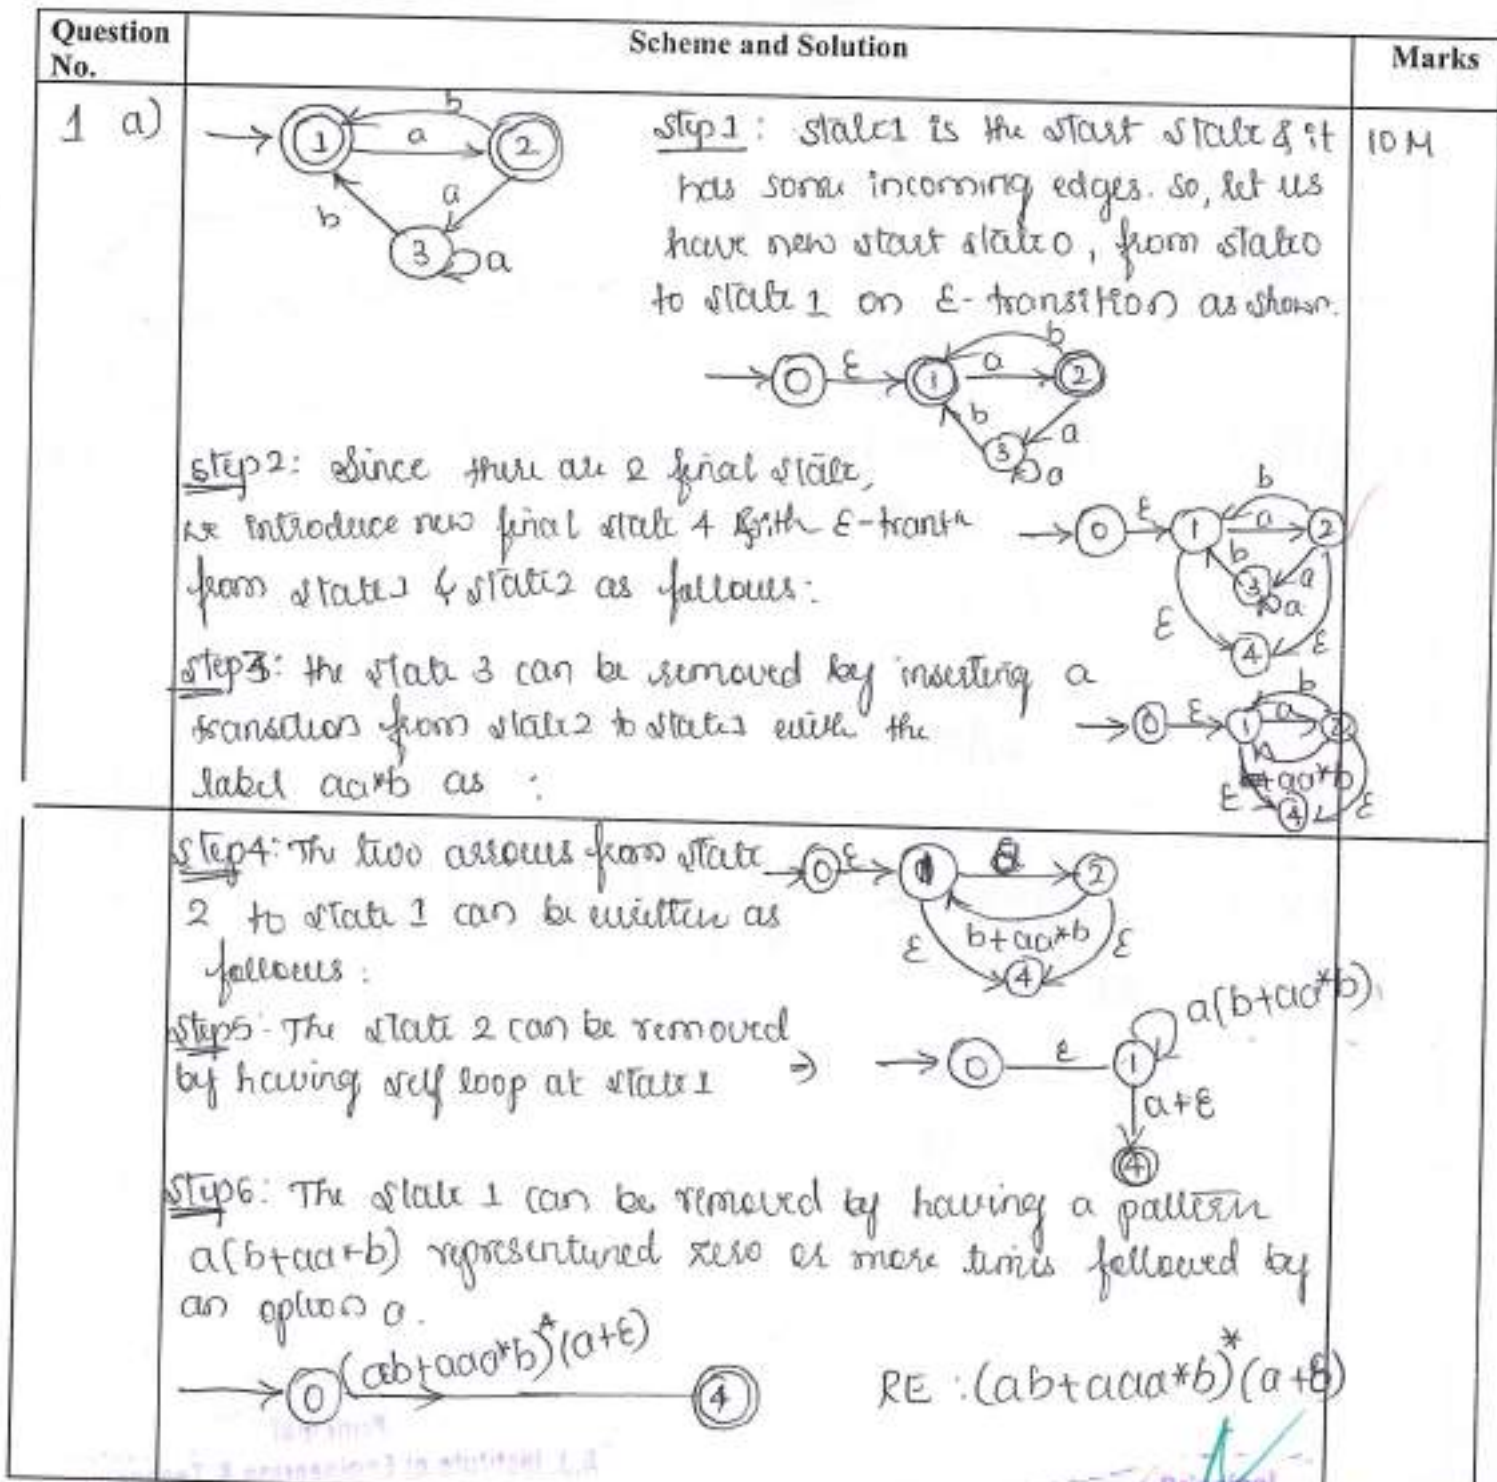 Question No.
Scheme and Solution
Marks
1 a)
10 M
1
2
3
a
b
a
b
a
step 1: state 1 is the start state & it
has some incoming edges. so, let us
have new start state 0, from state 0
to state 1 on ε-transition as shown.
0 ε 1 a 2
b
b
3
a
a
step 2: Since there are 2 final state,
we introduce new final state 4 with ε-trans
from state 1 & state 2 as follows:
0 ε 1 a 2
b
b
3
a
a
ε 4 ε
step 3: the state 3 can be removed by inserting a
transition from state 2 to state 1 with the
label aa*b as :
0 ε 1 a 2
b
aa*b
ε 4 ε
step 4: The two arrows from state
2 to state 1 can be written as
follows :
0 ε 1 2
b+aa*b
ε 4 ε
step 5: The state 2 can be removed
by having self loop at state 1 ⇒
0 ε 1
a(b+aa*b)
a+ε
4
step 6: The state 1 can be removed by having a pattern
a(b+aa*b) zero or more times followed by
an option a.
0 (ab+aaa*b)*(a+ε) 4
RE : (ab+aaa*b)*(a+ε)